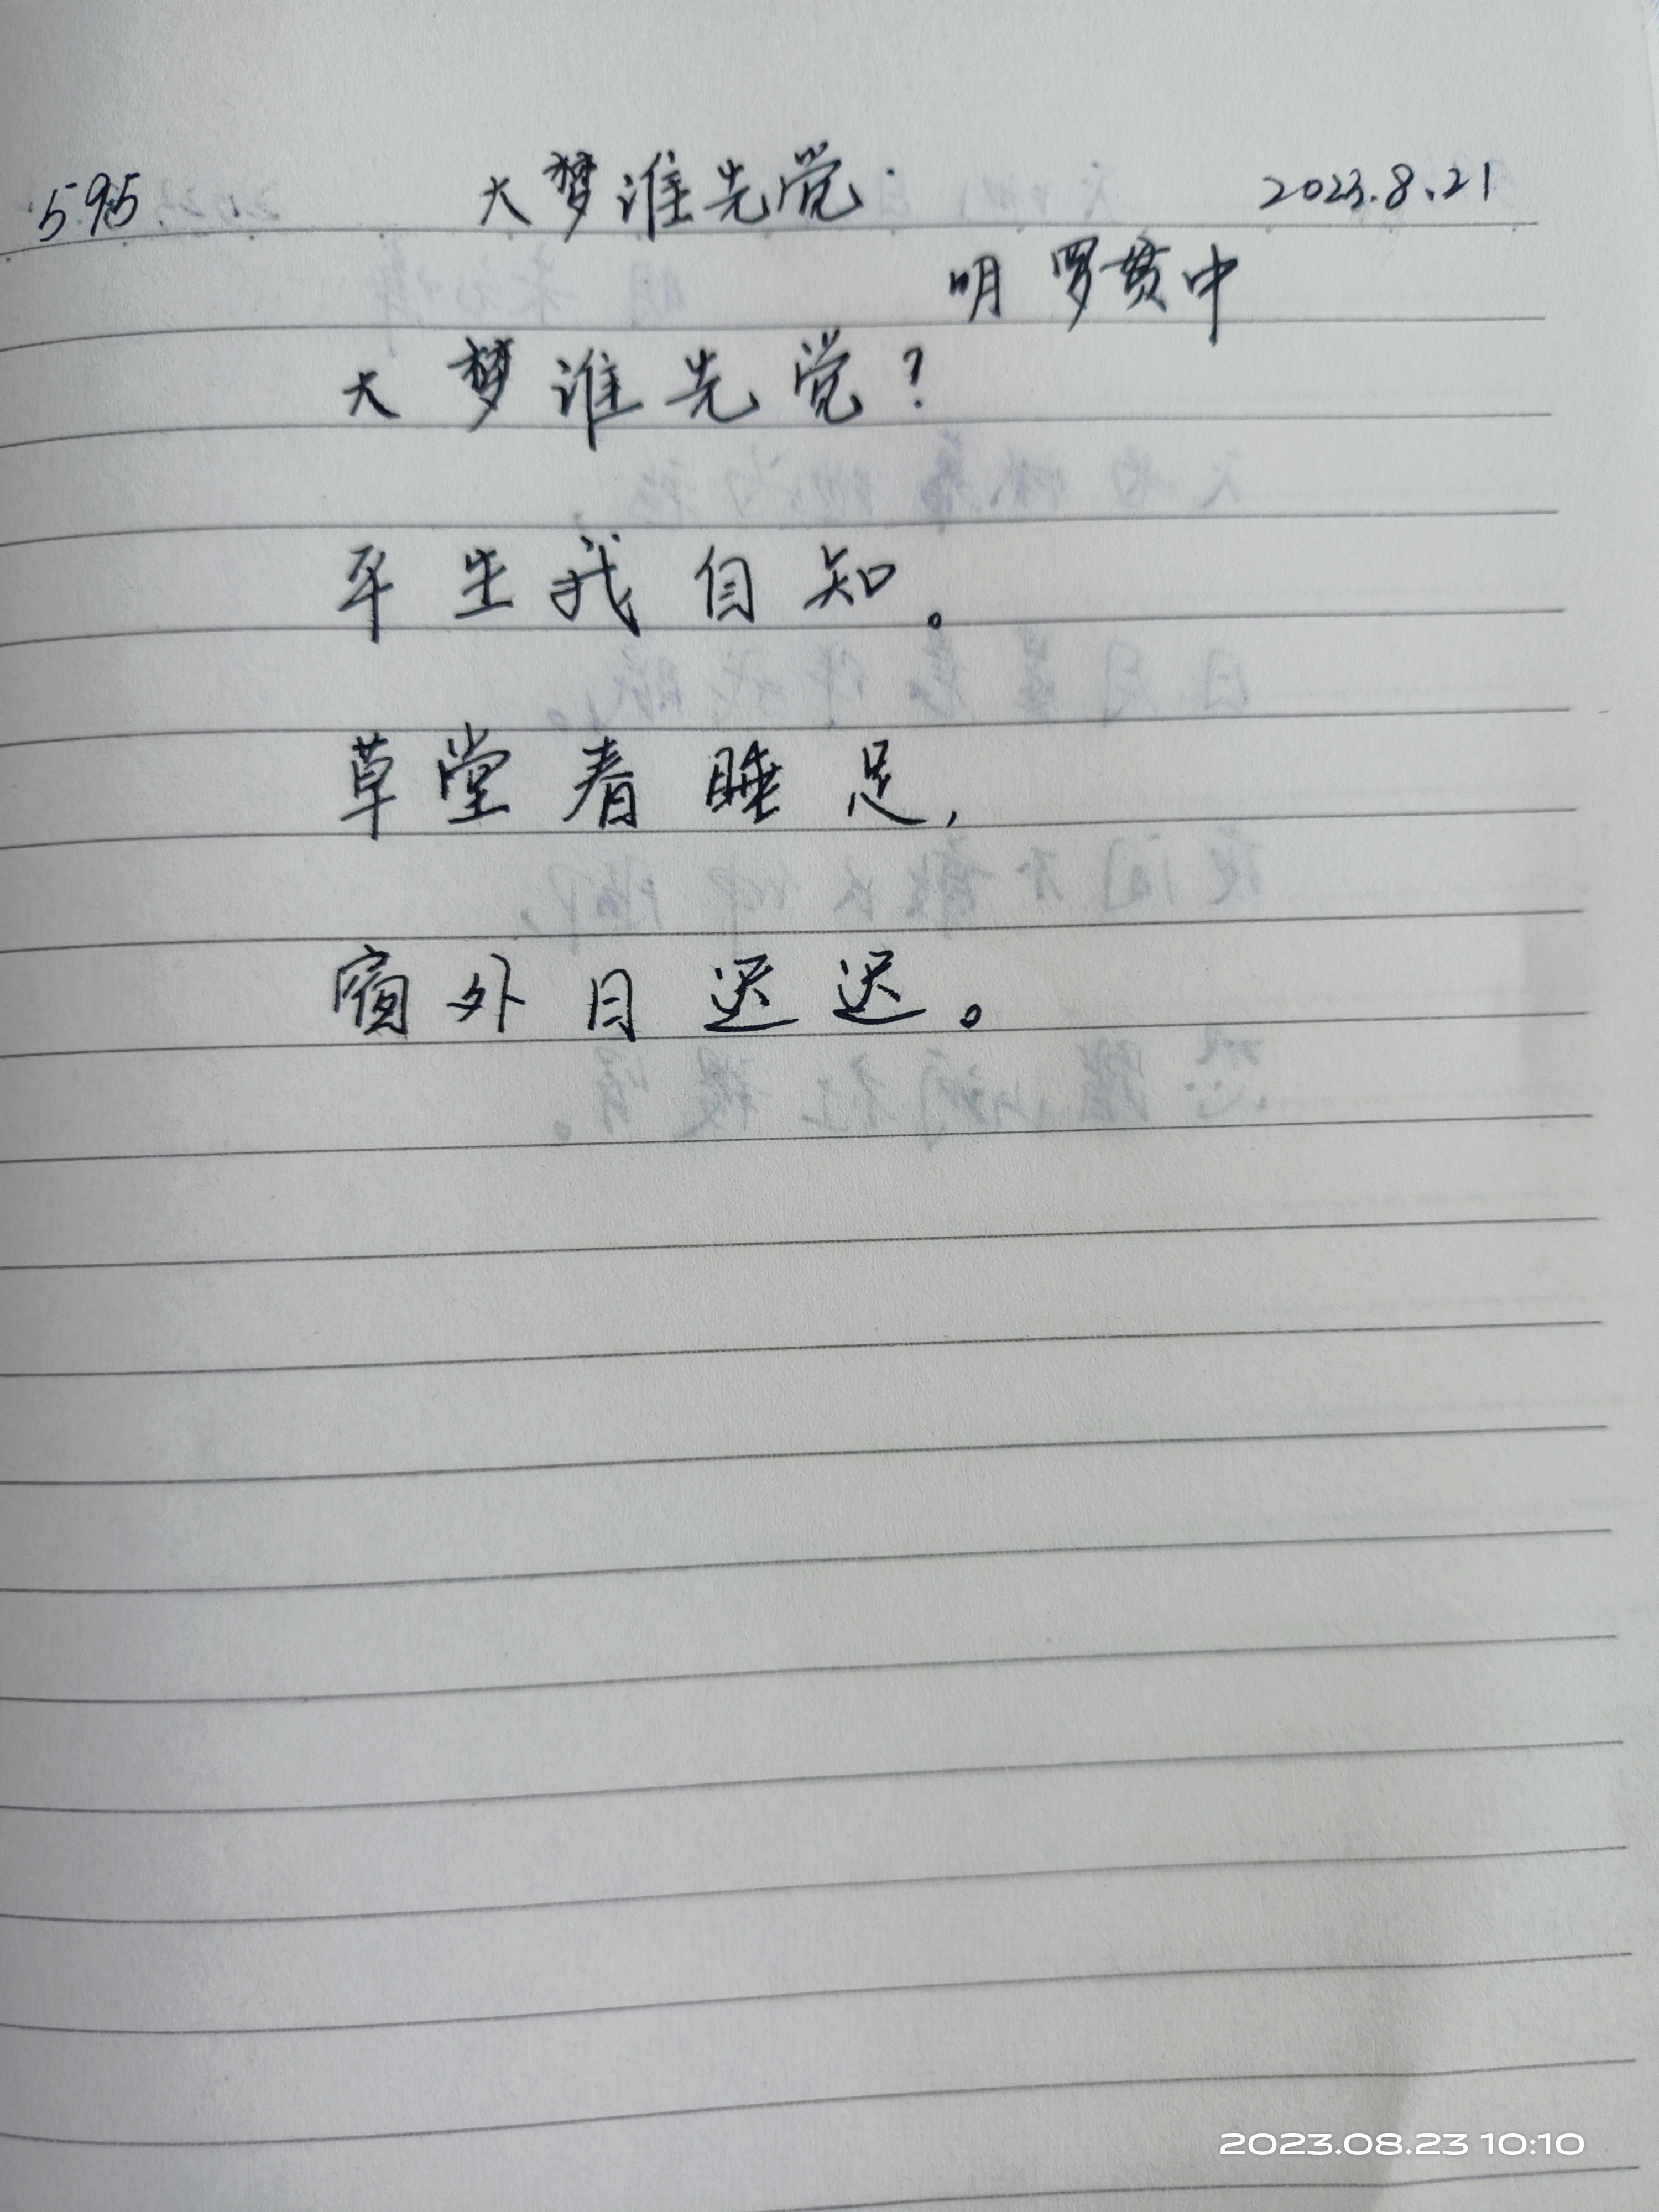 595 大梦谁先觉 2023.8.21
明 罗贯中
大梦谁先觉?
平生我自知。
草堂春睡足,
窗外日迟迟。
2023.08.23 10:10